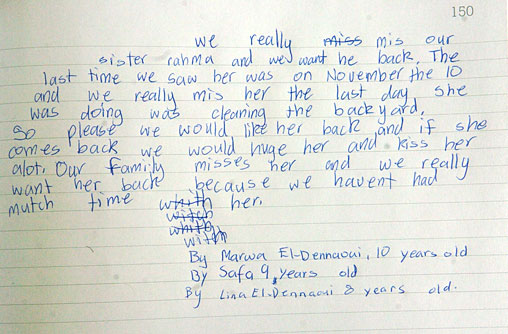 150
we really miss mis our
sister rahma and we want he back. The
last time we saw her was on November the 10
and we really mis her the last day she
was doing was cleaning the backyard.
So please we would like her back and if she
comes back we would huge her and kiss her
alot. Our family misses her and we really
want her back because we havent had
mutch time whith her.
witch
whith
with
By Marwa El-Dennaoui, 10 years old
By Safa 9, years old
By Lina El-Dennaoui 8 years old.